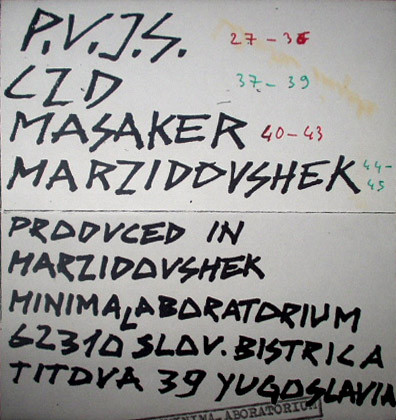 P.V.J.S. 27-36
CZD 37-39
MASAKER 40-43
MARZIDOVSHEK 44-45
PRODVCED IN
MARZIDOVSHEK
MINIMALABORATORIUM
62310 SLOV. BISTRICA
TITOVA 39 YUGOSLAVIA
MINIMA LABORATORIUM